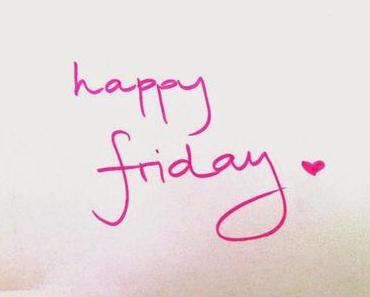 happy
friday ♥